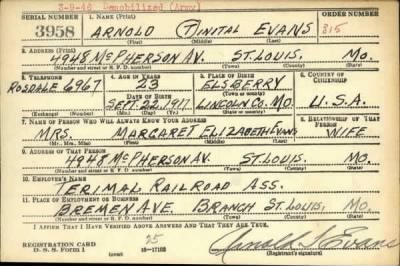 3-9-46 Demobilized (Army)
SERIAL NUMBER 1. NAME (Print) ORDER NUMBER
3958 ARNOLD (INITAL EVANS 815
(First) (Middle) (Last)
2. ADDRESS (Print)
4948 McPHERSON AV. ST. LOUIS. MO.
(Number and street or R. F. D. number) (Town) (County) (State)
3. TELEPHONE 4. AGE IN YEARS 5. PLACE OF BIRTH 6. COUNTRY OF CITIZENSHIP
ROSDALE 6967 23 ELSBERRY
DATE OF BIRTH (Town or county)
SEPT. 22. 1917 LINCOLN CO. MO. U.S.A.
(Exchange) (Number) (Mo.) (Day) (Yr.) (State or country)
7. NAME OF PERSON WHO WILL ALWAYS KNOW YOUR ADDRESS 8. RELATIONSHIP OF THAT PERSON
MRS. MARGARET ELIZABETH EVANS WIFE
(Mr., Mrs., Miss) (First) (Middle) (Last)
9. ADDRESS OF THAT PERSON
4948 McPHERSON AV. ST. LOUIS. MO.
(Number and street or R. F. D. number) (Town) (County) (State)
10. EMPLOYER'S NAME
TERIMAL RAILROAD ASS.
11. PLACE OF EMPLOYMENT OR BUSINESS
BREMEN AVE. BRANCH ST. LOUIS, MO.
(Number and street or R. F. D. number) (Town) (County) (State)
I AFFIRM THAT I HAVE VERIFIED ABOVE ANSWERS AND THAT THEY ARE TRUE.
REGISTRATION CARD 25
D. S. S. Form 1 16-17105 Arnold J. Evans
(over) Registrant's signature